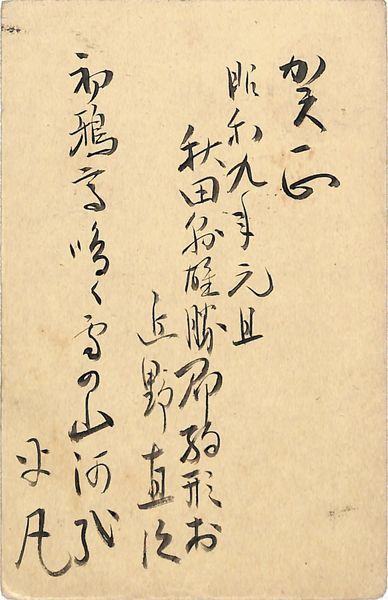 賀正
昭和九年元旦
秋田県雄勝郡駒形村
近野直
初鴉高鳴く雪の山河哉
凡